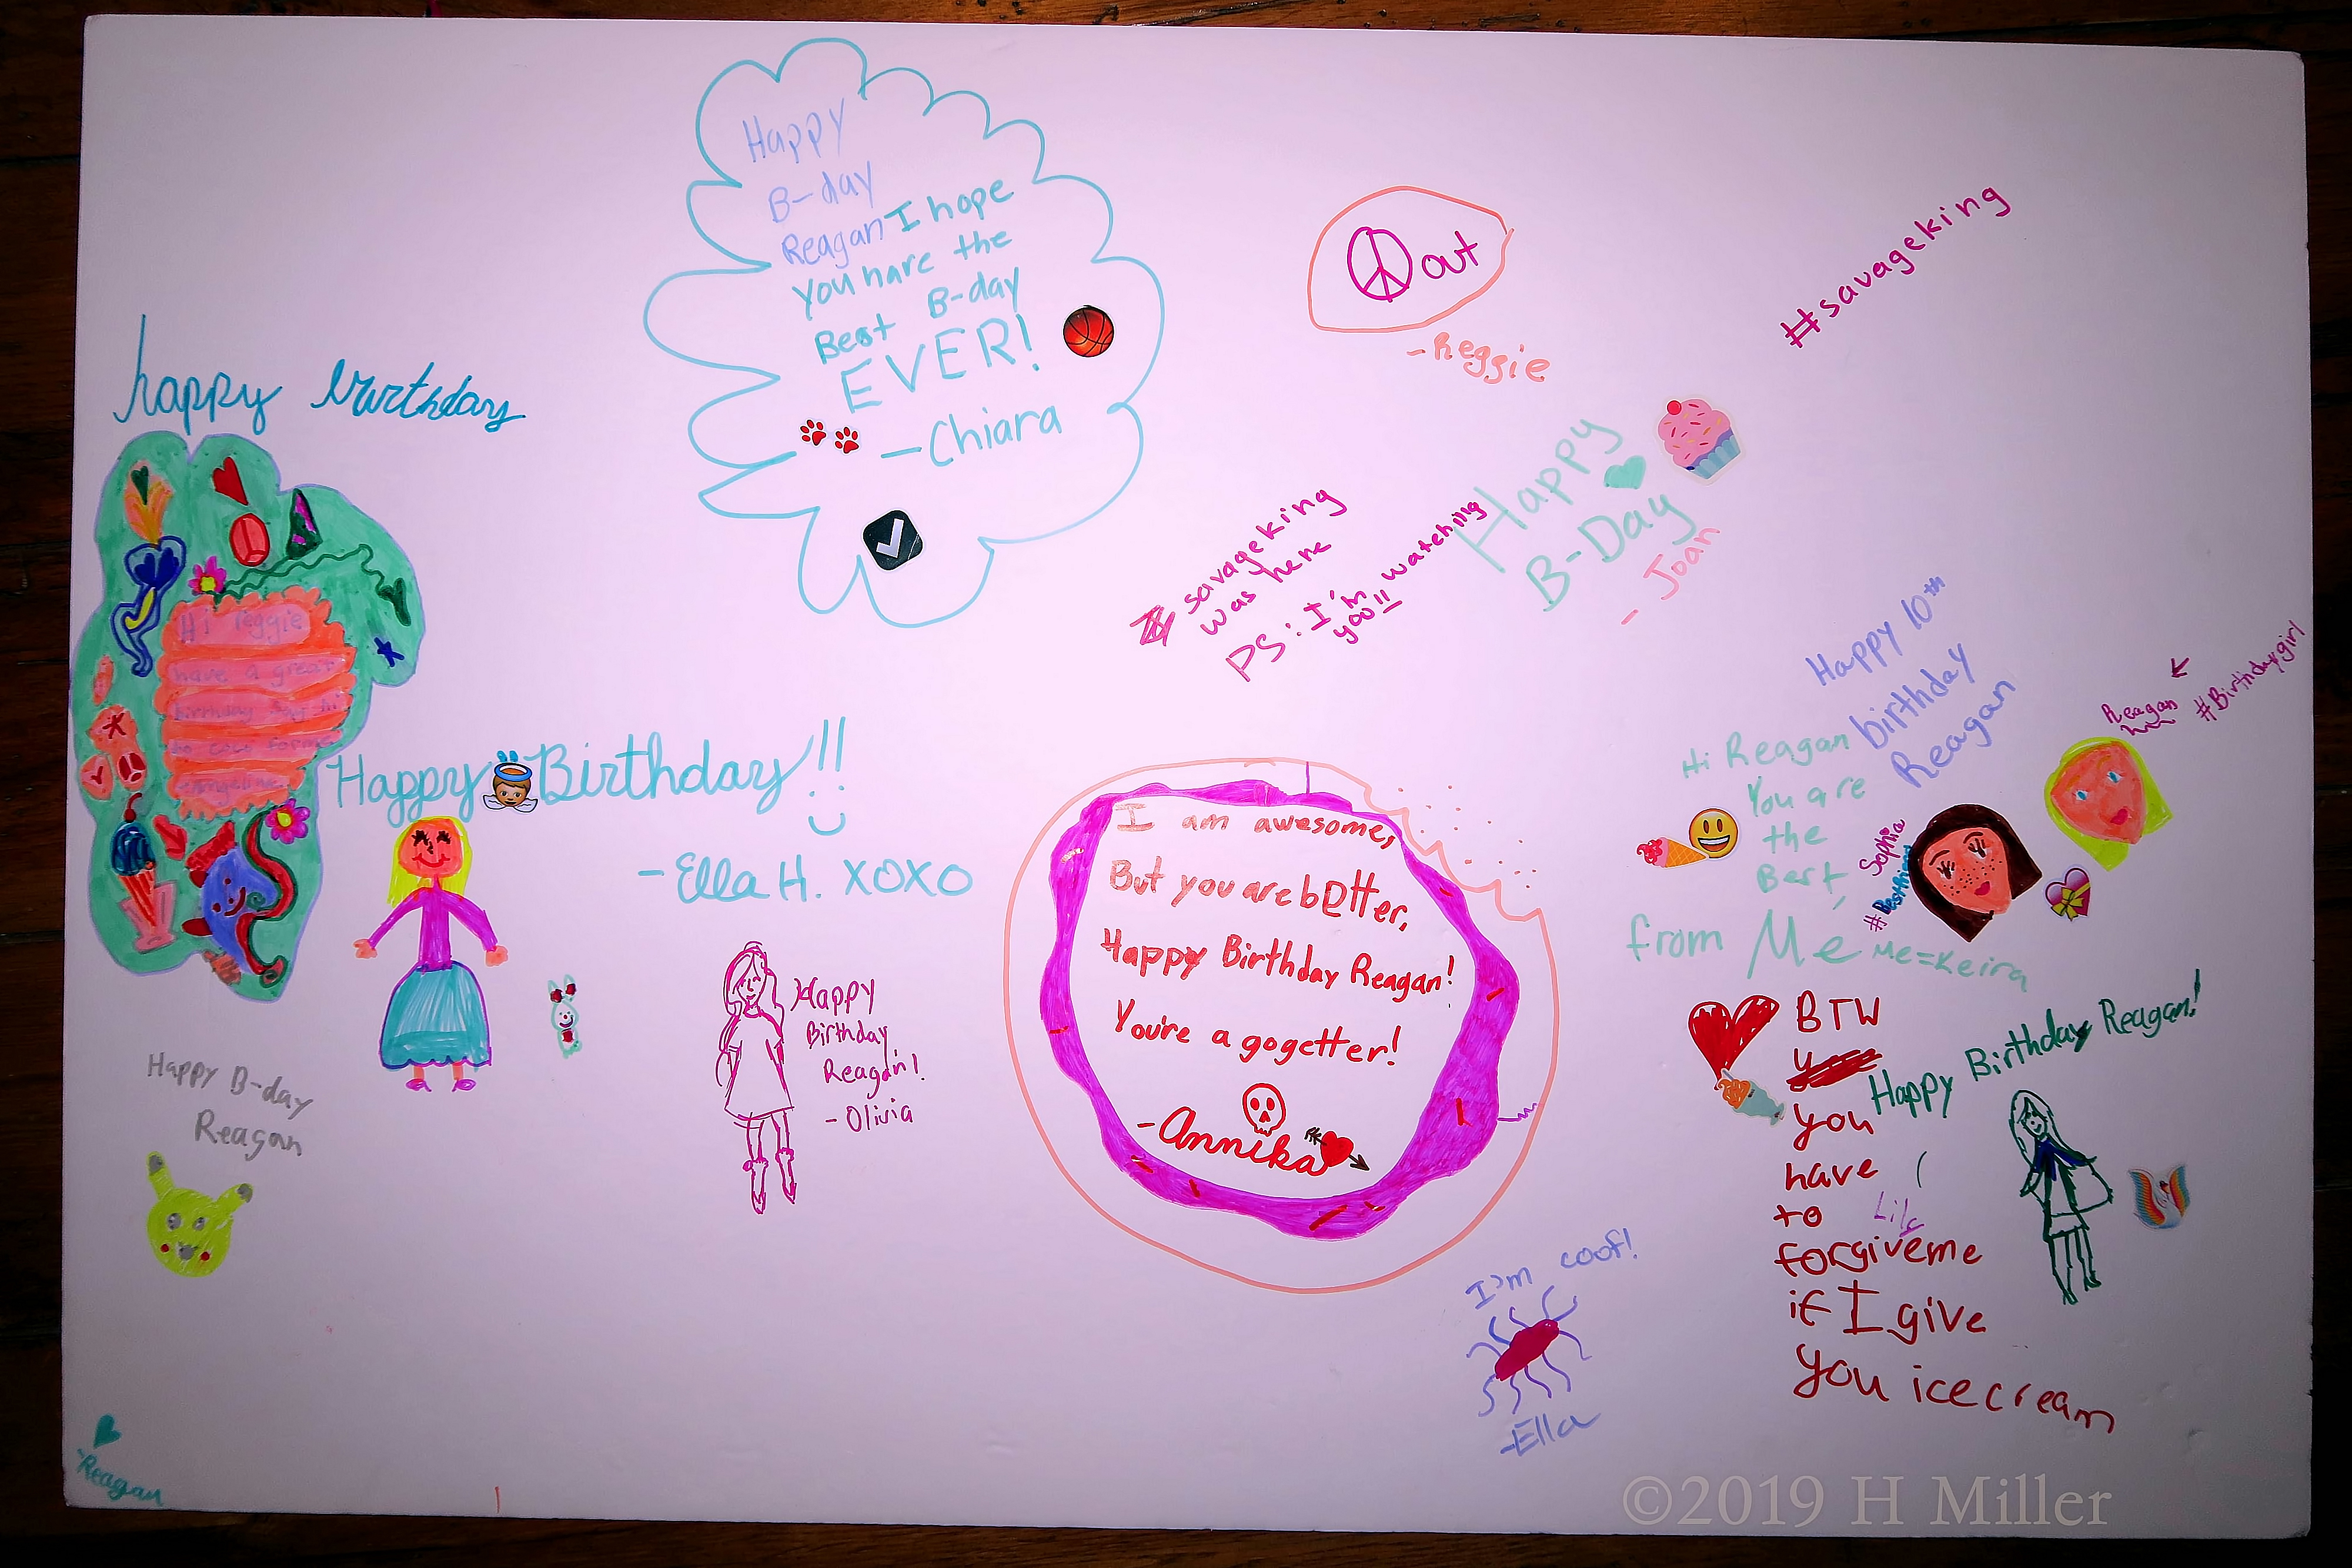 Happy
B-day
Reagan I hope
you have the
Best B-day
EVER!
-Chiara
out
-Reggie
#savageking
happy birthday
Hi reggie
have a great
birthday say hi
to coco for me
-Angeline
Happy B-Day
-Joan
savageking
was here
PS: I'm watching
you!!
Happy Birthday!!
-Ella H. XOXO
Happy 10th
birthday
Reagan
Hi Reagan
You are
the
Best
from Me
Me=Keira
Reagan
#Birthdaygirl
Sophia
#Bestfriend
I am awesome,
But you are b@tter,
Happy Birthday Reagan!
You're a gogetter!
-Annika
Happy
Birthday
Reagan!
-Olivia
Happy B-day
Reagan
BTW
you
have
to
forgive me
if I give
you icecream
Happy Birthday Reagan!
I'm coof!
-Ella
-Reagan
©2019 H Miller